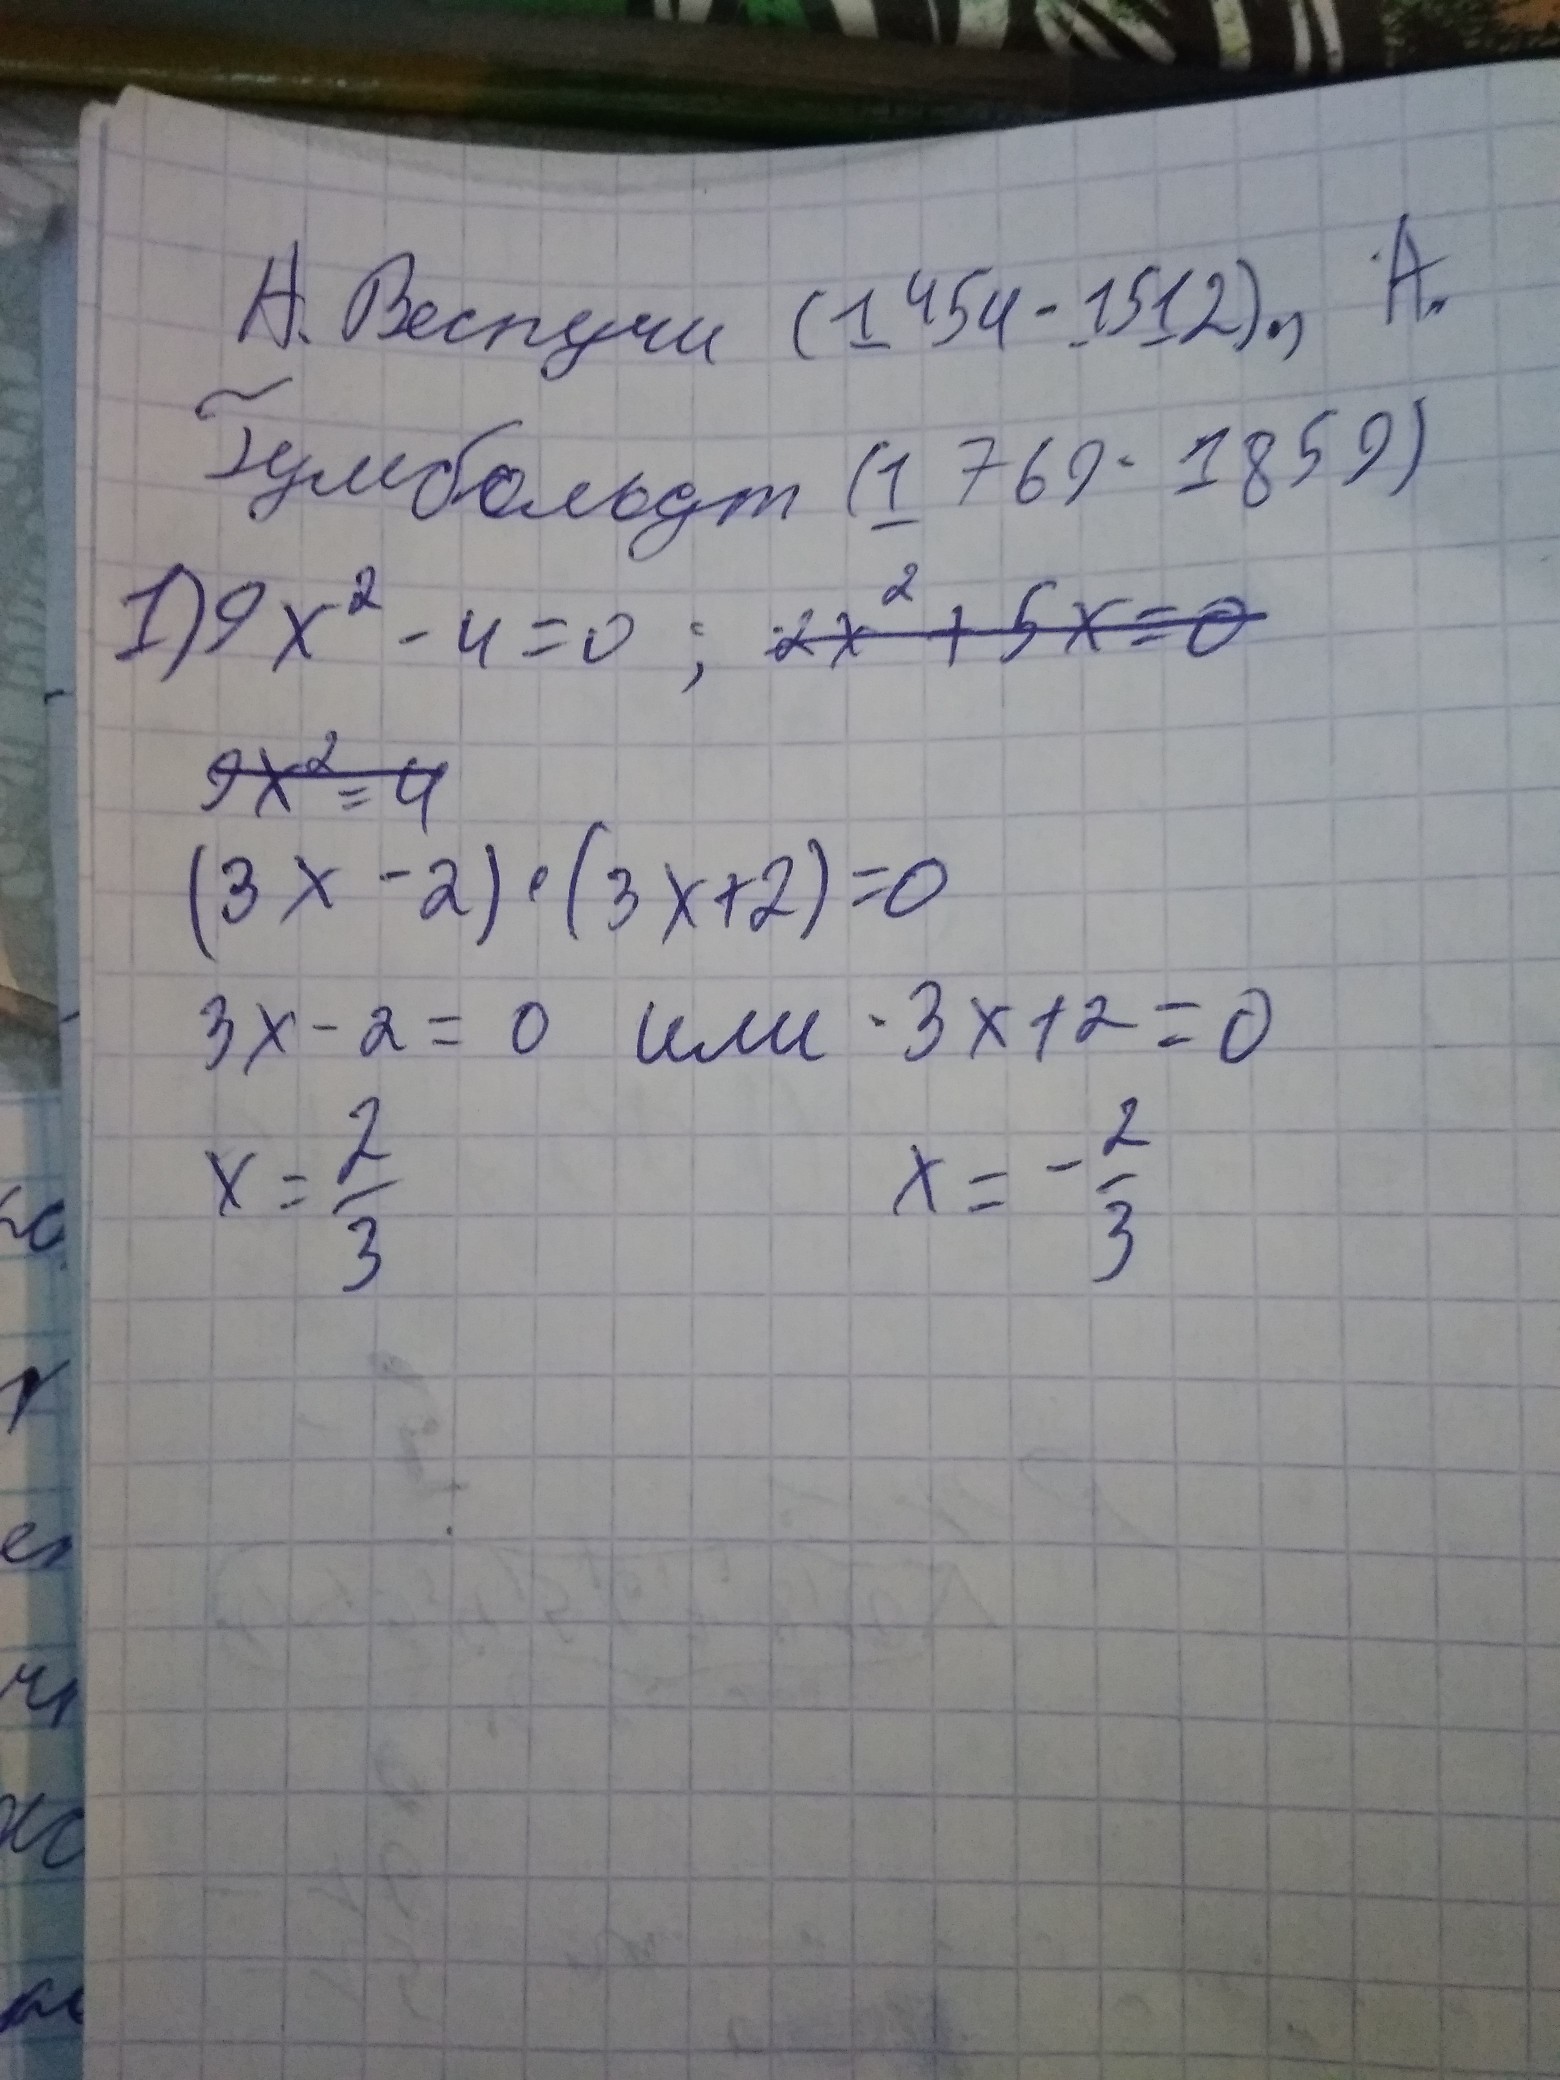 А. Веспучи (1454-1512)., А.
Гумбольдт (1769-1859)
1) 9x² - 4 = 0 ; 2x² + 5x = 0
9x² = 4
(3x - 2) · (3x + 2) = 0
3x - 2 = 0 или 3x + 2 = 0
x = 2/3 x = - 2/3